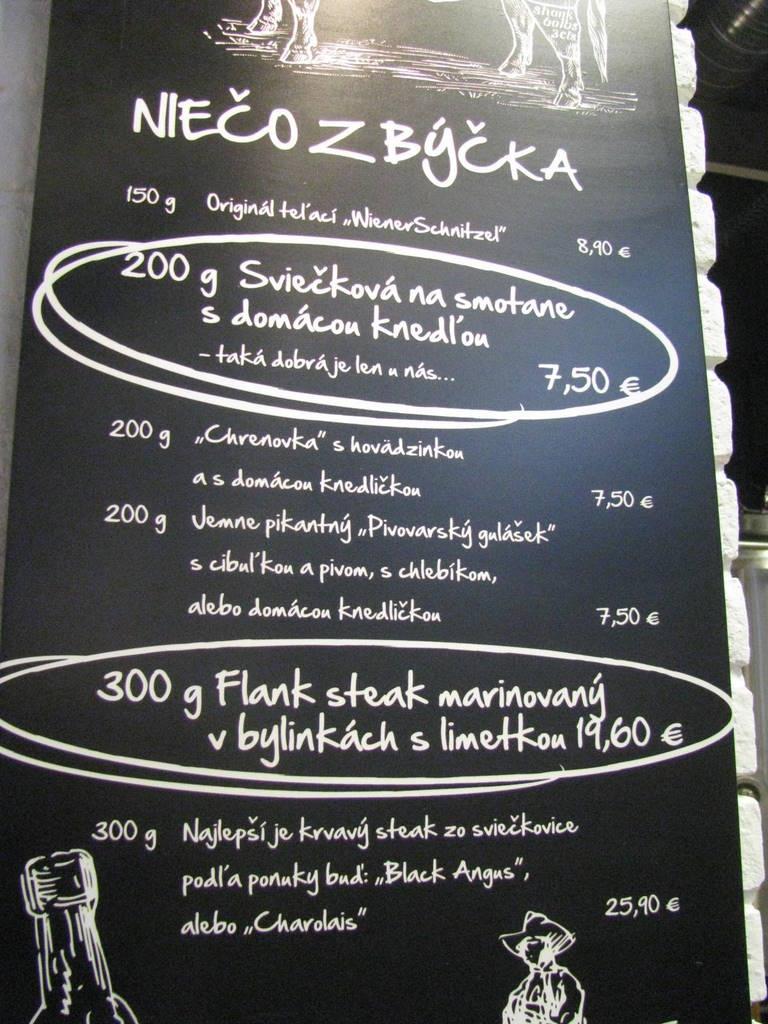 shank
bolus
3cts
NIEČO Z BÝČKA
150 g Originál teľací „WienerSchnitzel" 8,90 €
200 g Sviečková na smotane
s domácou knedľou
– taká dobrá je len u nás... 7,50 €
200 g „Chrenovka" s hovädzinkou
a s domácou knedličkou 7,50 €
200 g Jemne pikantný „Pivovarský gulášek"
s cibuľkou a pivom, s chlebíkom,
alebo domácou knedličkou 7,50 €
300 g Flank steak marinovaný
v bylinkách s limetkou 19,60 €
300 g Najlepší je krvavý steak zo sviečkovice
podľa ponuky buď: „Black Angus",
alebo „Charolais" 25,90 €